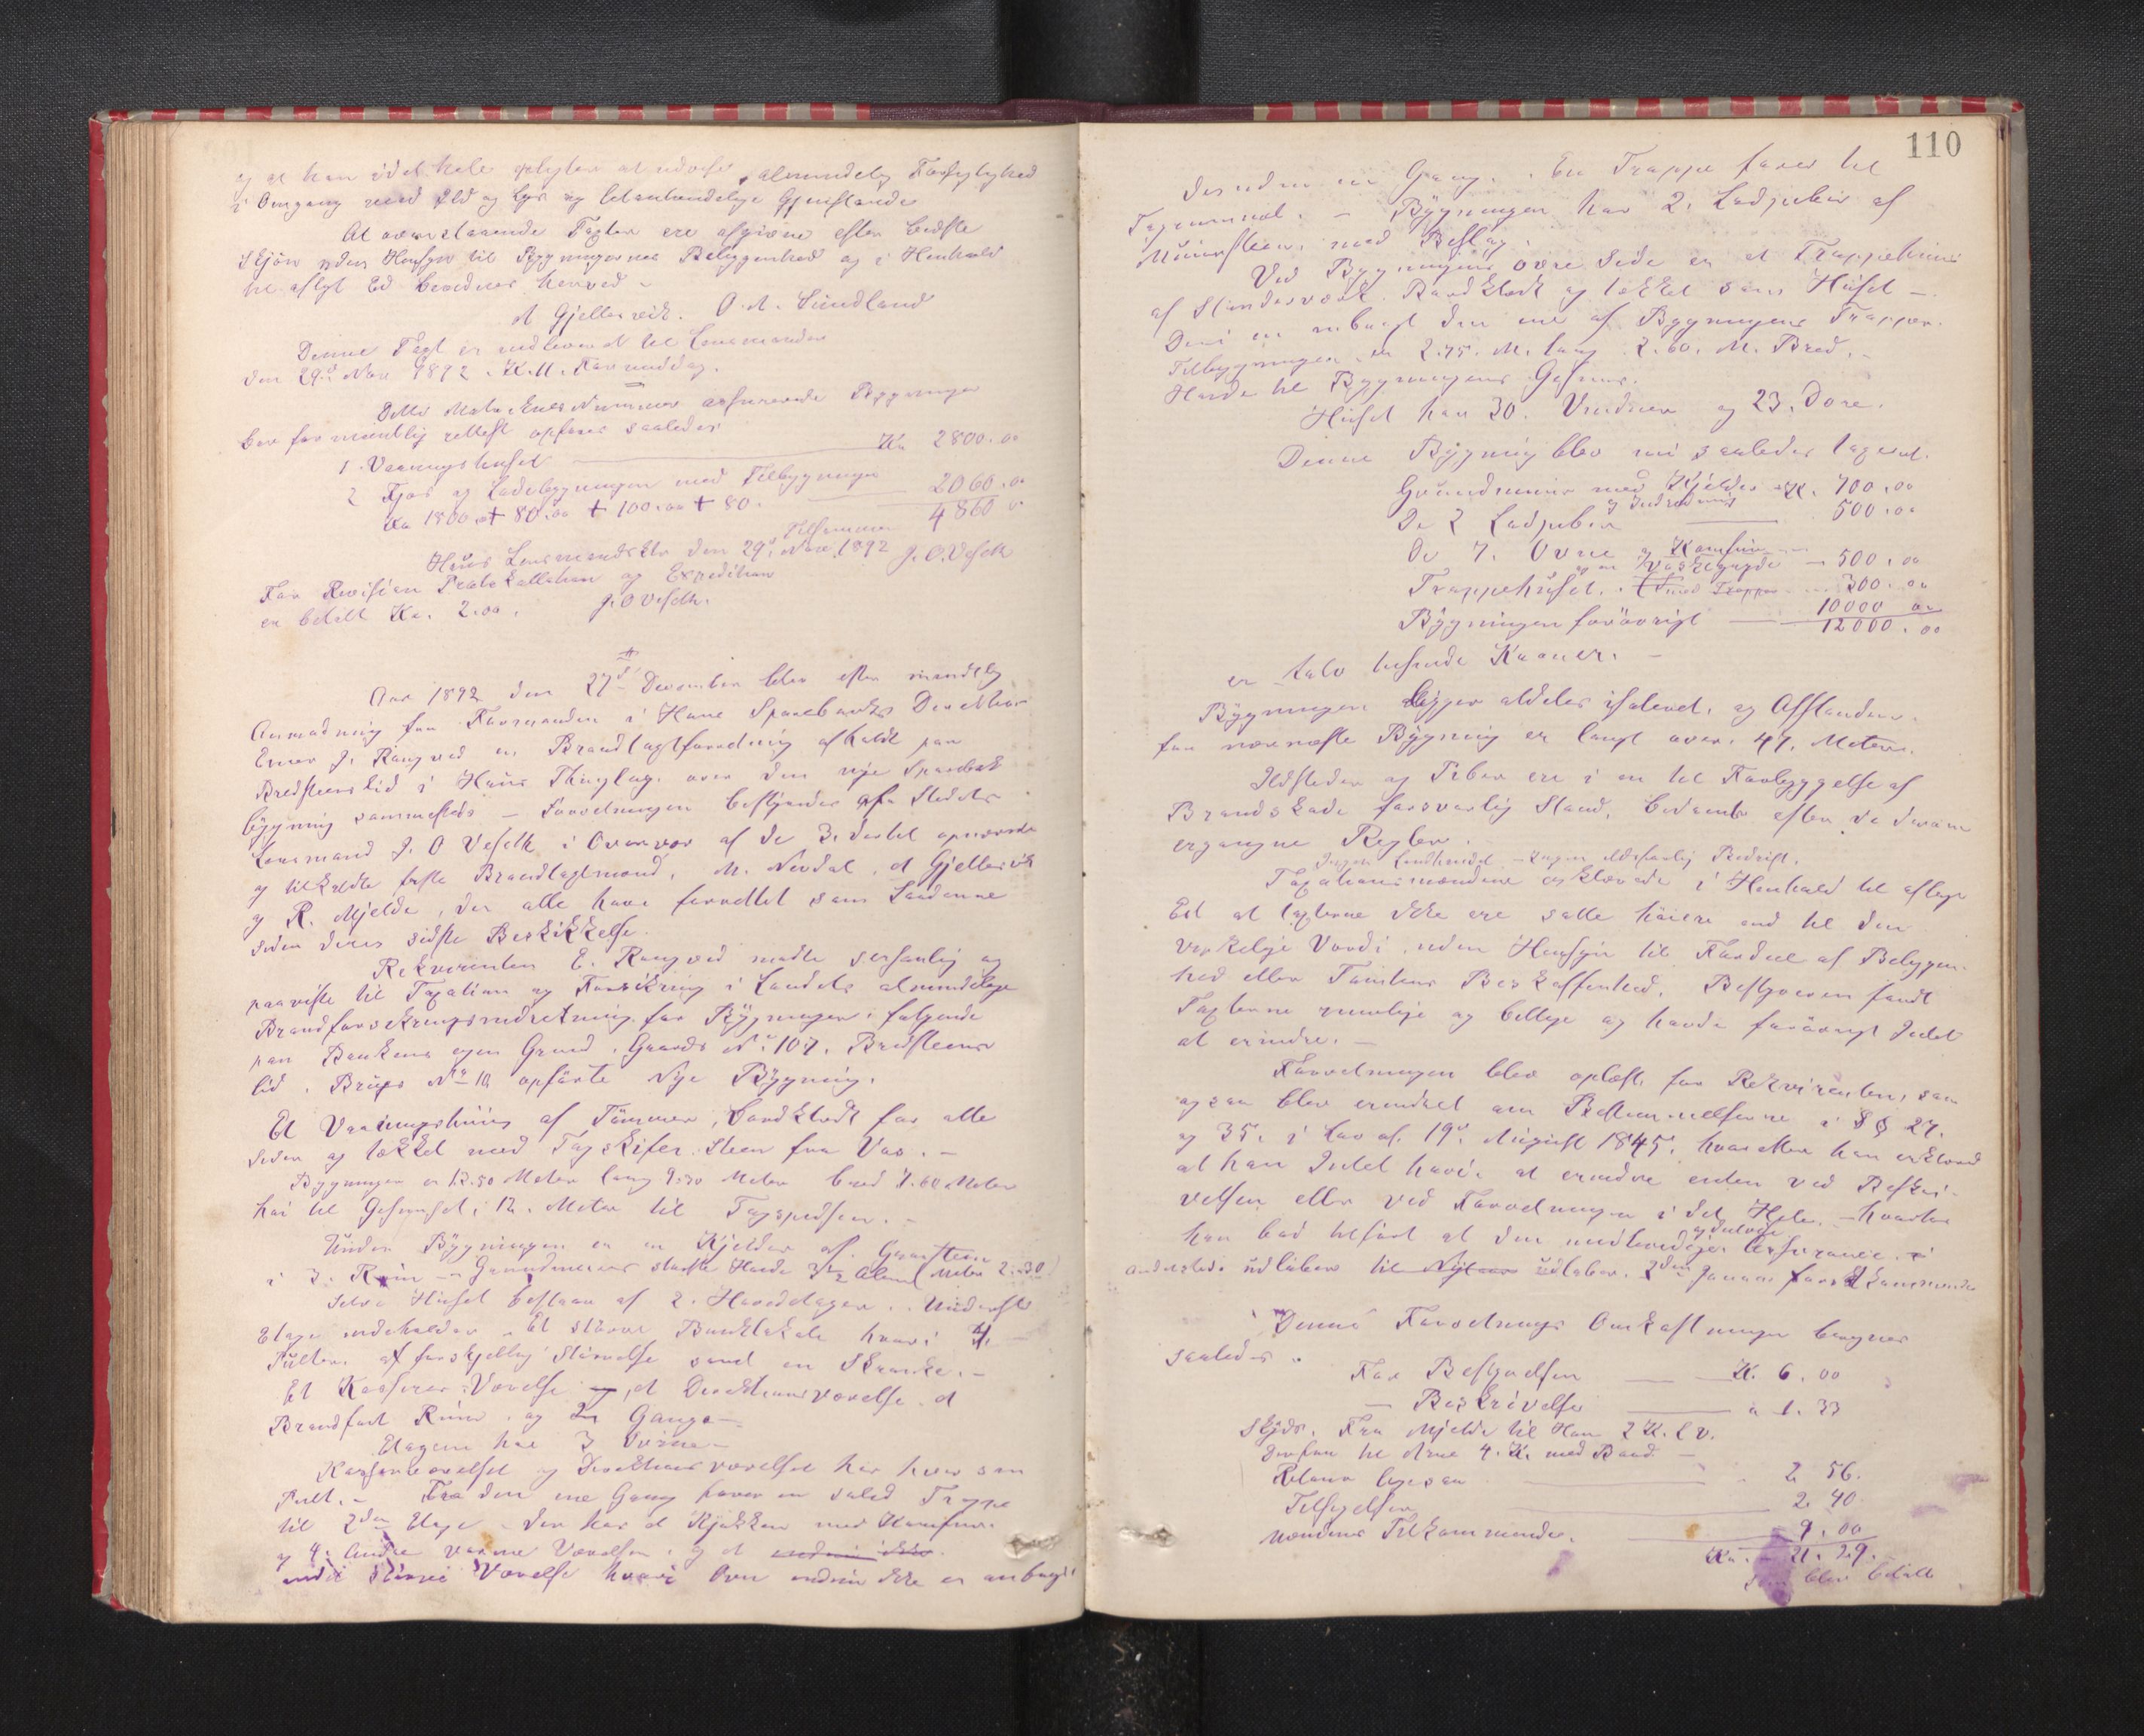 og at han i det hele pligter at udvise almindelig Forsigtighed
i Omgang med Ild og Lys og letantændelige Gjenstande
At ovenstaaende Taxter ere afgivne efter bedste
Skjøn uden Hensyn til Bygningernes Beliggenhed og i Henhold
til aflagt Ed bevidnes herved -
A Gjellesvik. O. A. Sundland
Denne Taxt er indleveret til Lensmanden
den 29de Nov 1892. Kl. 11. Formiddag.
Dette Matrikul Nummer assurerede Bygninger
bør formentlig rettest opføres saaledes
1. Vaaningshuset Kr 2800.00
2 Fjøs og Ladebygningen med Tilbygninger
Kr 1800.00 + 80.00 + 100.00 + 80. 2060.00
Tilsammen 4860 00
Huus Lensmandsktr den 29de Nov. 1892 J. O. Veseth
For Revision Protokollation og Expedition
er betalt Kr. 2.00. J. O Veseth.
Aar 1892 den 27de December blev efter mundtlig
Anmodning fra Formanden i Haus Sparebanks Direktion
Enner J. Rangved en Brandtaxtforretning afholdt paa
Bredsteenslid i Haus Thinglag over den nye Sparebank
bygning sammesteds - Forretningen bestyredes af Stedets
Lensmand J. O Veseth i Overvær af de 3 dertil opnævnte
og tilkaldte faste Brandtaxtmænd, M. Nordal, A Gjellesvik
og R. Mjelde, der alle have forrettet som Saadanne
siden deres sidste Beskikkelse.
Rekvirenten E. Rangved mødte personlig og
paaviste til Taxation og Forsikring i Landets almindelige
Brandforsikringsindretning for Bygninger følgende
paa Bankens egen Grund, Gaards No 107. Bredsteens
lid, Brugs No 10 opførte Nye Bygning.
Et Vaaningshuus af Tømmer, bordklædt paa alle
Sider og tækket med Tagskifer Steen fra Vos. -
Bygningen er 12.50 Meter lang 9.50 Meter bred 7.60 Meter
høi til Gesimset, 12. Meter til Tagspidsen. -
Under Bygningen er en Kjelder af Graasteen
i 3. Rum - Grundmurens største Høide 3½ Alen Meter 2.30
Selve Huset bestaar af 2. Hovedetager. Underste
Etage indeholder Et større Banklokale hvori 4.
Pulter af forskjellig Størrelse samt en Skranke. -
Et Kasserer Værelse, et Direktionsværelse et
Brandfast Rum og 2 Gange -
Etagen har 3 Ovne -
Kassererværelset og Direktionsværelset har hver sin
Pult. - Fra den ene Gang fører en solid Trappe
til 2den Etage - Der har et Kjøkken med Komfur.
og 4. Andre varme Værelser, og et
andet større Værelse hvori Ovn endnu ikke er anbragt
110
Desuden en Gang. En Trappe fører til
Tagrummet. - Bygningen har 2. Ladpiber af
Muursteen, med Beslag.
Ved Bygningens øvre Side er et Trappehuus
af Stændeværk Bordklædt og tækket som Huset -
Deri er anbragt den ene af Bygningens Trapper.
Tilbygningen er 2.75. M. lang 2.60. M. Bred. -
Høide til Bygningens Gesims.
Huset har 30. Vinduer og 23. Døre.
Denne Bygning blev nu saaledes taxeret.
Grundmuur med Kjelder Kr. 700.00
og Indredning
De 2 Ladpiber 500.00
De 7. Ovne og Komfur
og en Vaskegryde - 500.00
Trappehuset. med Trapper 300.00
Bygningen forøvrigt 10000 00
12000.00
er tolv tusende Kroner. -
Bygningen ligger aldeles isoleret, og Afstanden
fra nærmeste Bygning er langt over 47. Meter.
Ildsteder og Piber ere i en til Forebyggelse af
Brandskade forsvarlig Stand, bedømt efter de derom
ergangne Regler.
Ingen Landhandel - Ingen ildsfarlig Bedrift.
Taxationsmændene erklærede i Henhold til aflagt
Ed at Taxterne ikke ere satte høiere end til den
virkelige Værdi, uden Hensyn til Fordeel af Beliggen-
hed eller Tomtens Beskaffenhed. Bestyreren fandt
Taxterne rimelige og billige og havde forøvrigt Intet
at erindre. -
Forretningen blev oplæst for Rekvirenten, som
ogsaa blev erindret om Bestemmelserne i §§ 27.
og 35. i Lov af 19de August 1845, hvorefter han erklærede
at han Intet havde at erindre enten ved Beskri-
velsen eller ved Forretningen i det Hele, - hvorhos
han bad tilført at den midlertidige Assurance
andetsteds udløber 2den Januar førstkommende
Denne Forretnings Omkostninger beregnes
saaledes.
For Bestyrelsen Kr. 6.00
- Beskrivelse " 1.33
Skyds. Fra Mjelde til Haus 2 K. L v.
derfra til Arne 4. K. med Baad -
Retour ligesaa 2 56.
Tilsigelser 2 40
Mændenes Tilkommende. 9.00
Kr. 21.29.
som blev betalt